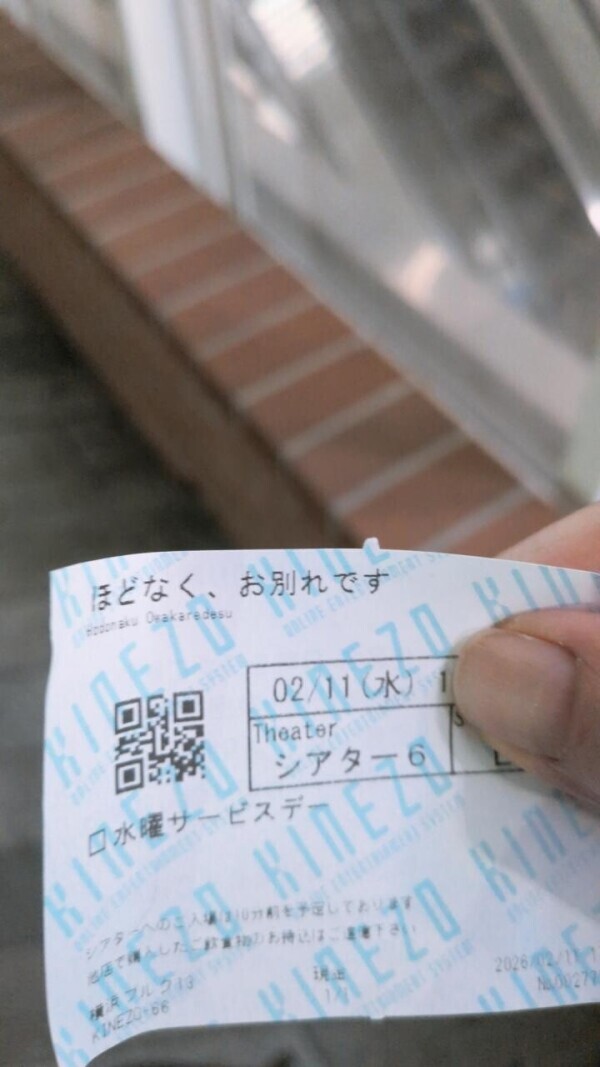 ほどなく、お別れです
Hodonaku Owakaredesu
02/11(水) 1
Theater
シアター6
□水曜サービスデー
シアターへのご入場は10分前を予定しております
他店で購入したご飲食物のお持込はご遠慮下さい
横浜ブルク13
現金
2026/02/11 1
KINEZO+66
1/1
KINEZO
ONLINE ENTERTAINMENT SYSTEM